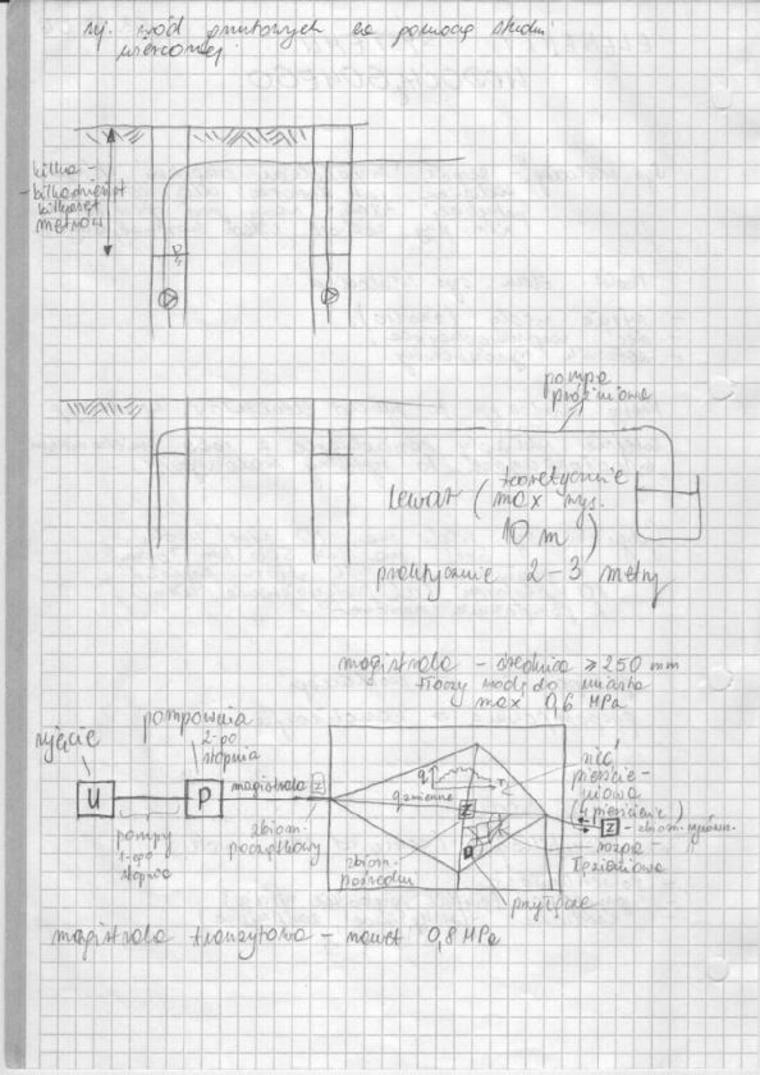 uj. wód gruntowych za pomocą studni
wierconej
kilka -
- kilkadziesiąt
kilkaset
metrów
pompa
próżniowa
Lewar (teoretycznie
max wys.
10 m)
praktycznie 2-3 metry
magistrala - średnica ≥ 250 mm
tłoczy wodę do miasta
max 0,6 MPa
pompownia
2-go
stopnia
ujęcie
U
P
magistrala
Z
pompy
1-ego
stopnia
zbiorn.
początkowy
q
q zmienne
Z
zbiorn.
pośredni
sieć
pierście-
niowa
(4 pierścienie)
Z - zbiorn. wyrówn.
rozga-
łęzieniowa
przyłącze
magistrala tranzytowa - nawet 0,8 MPa